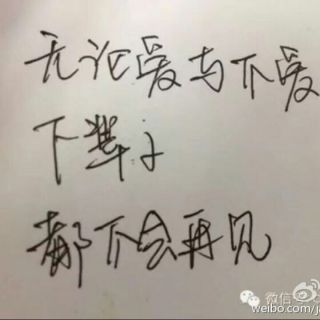 无论爱与不爱
下辈子
都不会再见
微信
weibo.com/ja